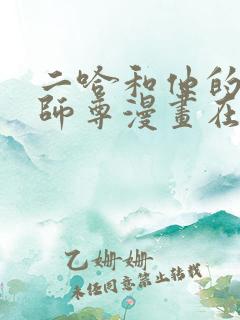 二哈和他的
師尊漫畫在
乙姗姗
未经同意禁止转载